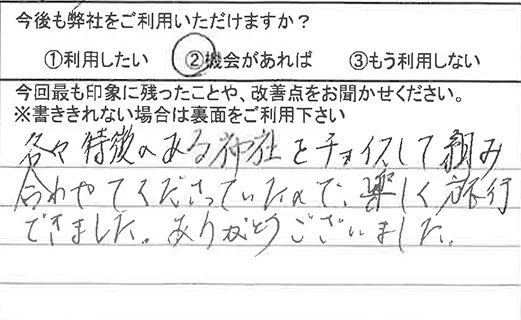 今後も弊社をご利用いただけますか?
①利用したい ②機会があれば ③もう利用しない
今回最も印象に残ったことや、改善点をお聞かせください。
※書ききれない場合は裏面をご利用下さい
各々特徴のある神社をチョイスして組み
合わせてくださっていたので、楽しく旅行
できました。ありがとうございました。